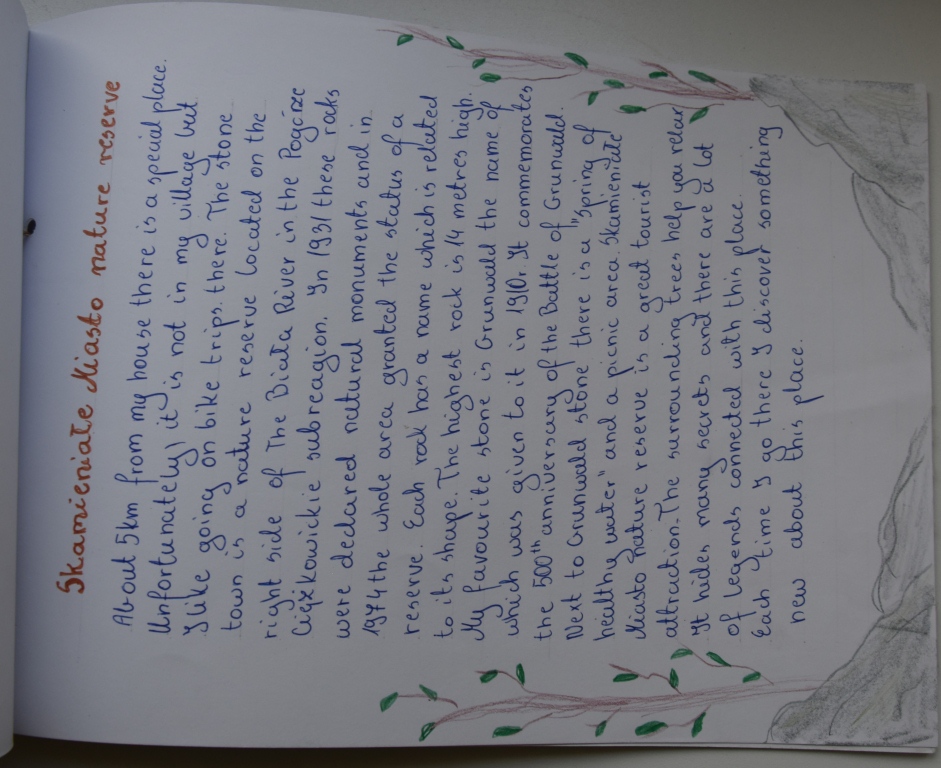 Skamieniałe Miasto nature reserve
About 5km from my house there is a special place.
Unfortunately, it is not in my village but
I like going on bike trips there. The stone
town is a nature reserve located on the
right side of The Biała River in the Pogórze
Ciężkowickie subreagion. In 1931 these roaks
were declared natural monuments and in
1974 the whole area granted the status of a
reserve. Each roak has a name which is related
to its shape. The highest rock is 14 metres high.
My favourite stone is Grunwald the name of
which was given to it in 1910r. It commemorates
the 500th anniversary of the Battle of Grunwald.
Next to Grunwald stone there is a "spring of
healthy water" and a picnic area. Skamieniałe
Miasto nature reserve is a great tourist
attraction. The surrounding trees help you relax
It hides many secrets and there are a lot
of legends connected with this place.
Each time I go there I discover something
new about this place.